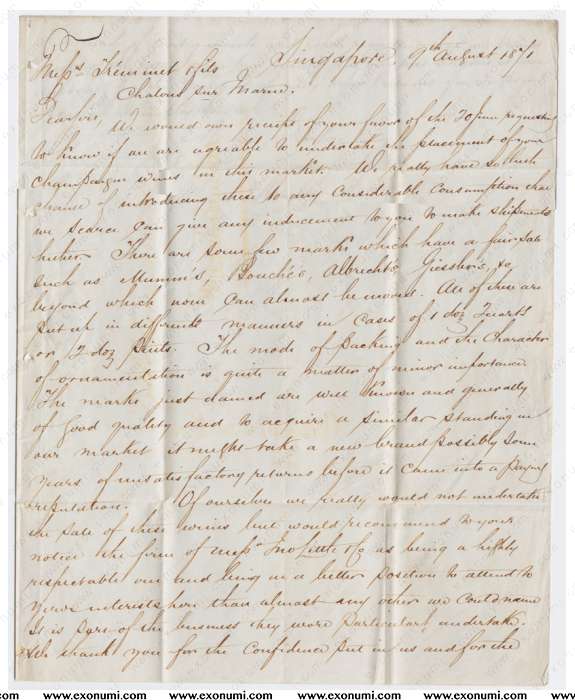 Singapore 9th August 1871
Messrs Tréminet & fils
Chalons sur Marne.
Dear Sirs, We would own receipt of your favor of the 20 June requesting
to know if we are agreable to undertake the placement of your
Champagne wines in this market. We really have so little
chance of introducing these to any Considerable Consumption that
we scarce can give any inducement to you to make shipments
hither. There are some few marks which have a fair sale
such as Mumm's, Bouché's, Albrecht's, Giesler's, &c
beyond which none can almost be moved. All of these are
put up in different manners in cases of 1 doz Quarts
or 2 doz pints. The mode of packing and the Character
of ornamentation is quite a matter of minor importance
The marks just named are well known and generally
of good quality and to acquire a similar standing in
our market it might take a new brand possibly some
years of unsatisfactory returns before it came into a paying
reputation. Of ourselves we really would not undertake
the sale of these wines but would recommend to your
notice the firm of Messrs Jno Little & Co as being a highly
respectable one and being in a better position to attend to
your interests here than almost any other we could name
It is part of the business they more particularly undertake.
We thank you for the Confidence put in us and for the
www.exonumi.com www.exonumi.com www.exonumi.com